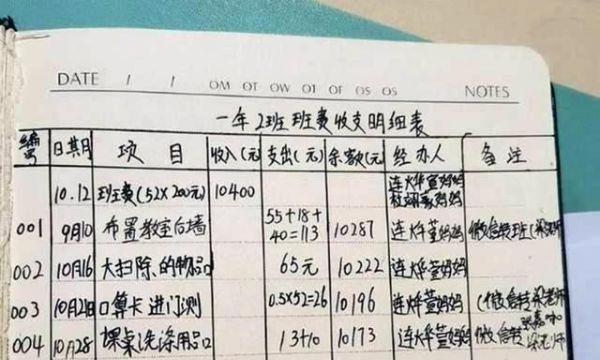 DATE / / OM OT OW OT OF OS OS NOTES
一年2班班费收支明细表
编号 日期 项目 收入(元) 支出(元) 余额(元) 经办人 备注
10.12 班费(52×200元) 10400 连烨萱妈妈
001 9月10 布置教室后墙 55+18+40=113 10287 连烨萱妈妈
002 10月16 大扫除的物品 65元 10222 连烨萱妈妈
003 10月21 口算卡进门测 0.5×52=26 10196 连烨萱妈妈 (微信转梁老师
004 10月28 课桌洗涤用品 13+10 10173 连烨萱妈妈 微信转